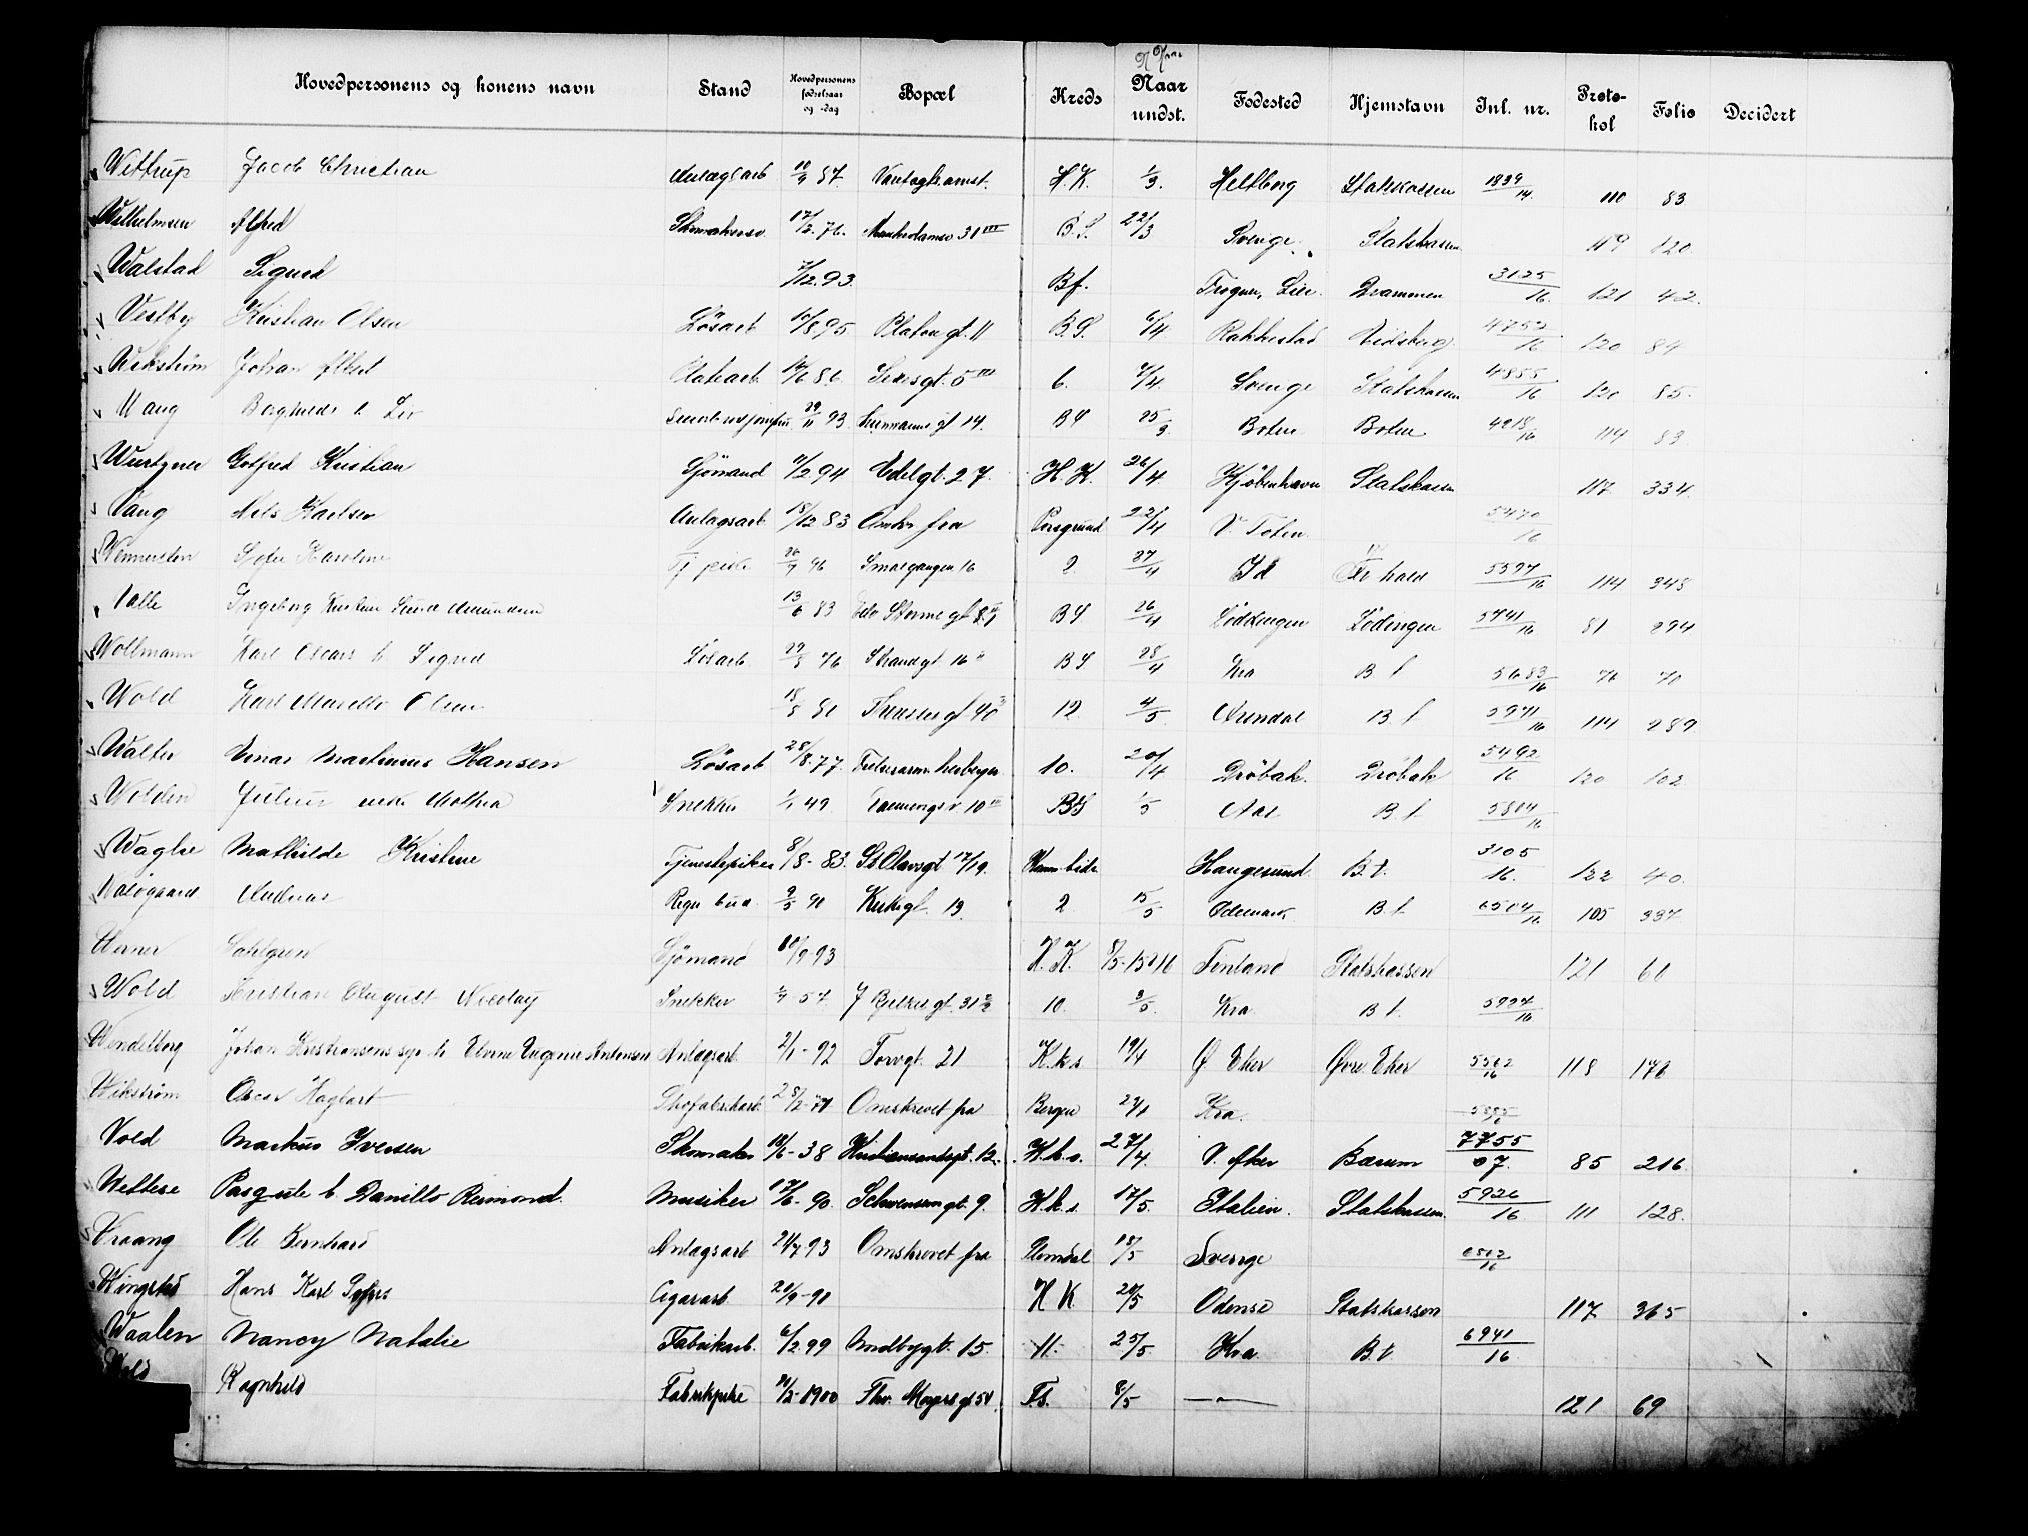 N Naar
Hovedpersonens og konens navn Stand Hovedpersonens fødselsaar og -dag Bopæl Kreds Naar undst. Fødested Hjemstavn Inl. nr. Proto-kol Folio Decidert
Wittrup Jacob Christian Anlægsarb 10/9 87 H.K. 1/3. Heltborg Statskassen 1839/14. 110 83
Wilhelmsen Alfred Skomakersv. 17/2.76. 31 III B.S. 22/3 Sverige Statskassen 119 120
Walstad Sigurd 7/12.93 Bf. Trogner, Lier. Drammen 3125/16 121 42.
Vestby Kristian Olsen Løsarb 10/8.95 Platou gt. 11 B.S. 6/4 Rakkestad Eidsberg 4752/16 120 84
Wikstrøm Johan Albert 6. 7/4. Sverige Statskassen 4855/16 120 85.
Wang Borghild 29/11 93 gt 14. BS 25/3. Botne Botne 4218/16 114 83
Wurtzner Gotfred Kristian Sjømand 11/2 94 Edelgt. 27. H.K. 26/4 Kjøbenhavn Statskassen 117. 334.
Vang Nils Karlsen Anlagsarb. 15/12 83 Anm. fra Porsgrund 22/4 V. Toten. 5470/16
Wennersten Sofie Karoline Tj pike 26/9 96 Smalgangen 16 2. 27/4 Id Fr.hald 5597/16 114 348
Valle Ingeborg Kristine Amundsen 13/6 83 Edv Storms gt 8 BS 26/4 Lödingen Lödingen 5741/16 81 294
Wollmann Karl Oscar h Sigrid Løsarb 29/5 76 Strandgt. 16 BS 28/4 Kra B.t 5683/16 76 70
Wold Karl Marelius Olsen 18/5 81 gt 40 12 4/5. Arendal B.t 5971/16 114 289.
Walter Einar Martinius Hansen Løsarb 28/8.77. Frelsesarm. herberge 10. 20/4 Drøbak. Drøbak 5492/16 120 102
Wolden Julius enke Mathea Snekker 1/1 49 10 III BS 1/5 Aas B.t 5804/16
Waglie Mathilde Kristine Tjenestepike 8/8-83. St Olavsgt 17/19. Haugesund B.t. 3105/16. 122 40.
Waløgaard Andreas Regn bud. 9/5 90 Kirkegt. 19. 2 15/5 B.t 6504/16 105 337
Werner Dahlgren Sjømand 10/9-93 H.K. 8/5-1516 Finland Statskassen 121 61
Wold Kristian August Nicolay Snekker 57. J Bjelkes gt. 31 10. 3/5. Kra B.t. 5997/16
Wendelborg Johan Kristiansens sep h Elvine Eugenie Antonsen Anlagsarb. 2/1-92 Torvgt. 21 K.k.s 19/4 Ø Eker Øvre Eker 5562/16 118 170
Wikstrøm Oscar Hagbart Skofabrikarb. 28/2-71 Omskrevet fra Bergen Kra.
Vold Markus Iversen Skomaker 10/6-38 Kristiansandsgt. 12. H.k.s. 27/4. V. Aker Bærum 7755/07. 85 216
Wettere Pasquale h. Danillo Reimond. Musiker 17/6-90. Schwensensgt. 9. H.k.s. 17/5. Italien. Statskassen. 5926/16 111 128.
Vraang Ole Bernhard Anlagsarb 21/7.93 Omskrevet fra Slemdal 18/5 Sverige 6502/16
Wingsted Hans Karl Sofus Cigararb. 20/9-91 H K 20/5 Odense Statskassen 117 365
Waalen Nancy Natalie Fabrikarb. 6/2.99 15. 11. 25/5. Kra B.t 6941/16.
Wold Ragnhild Fabrikpike 11/2-1900 Thv. Meyers gt 54. F.S. 8/5 — 121 69